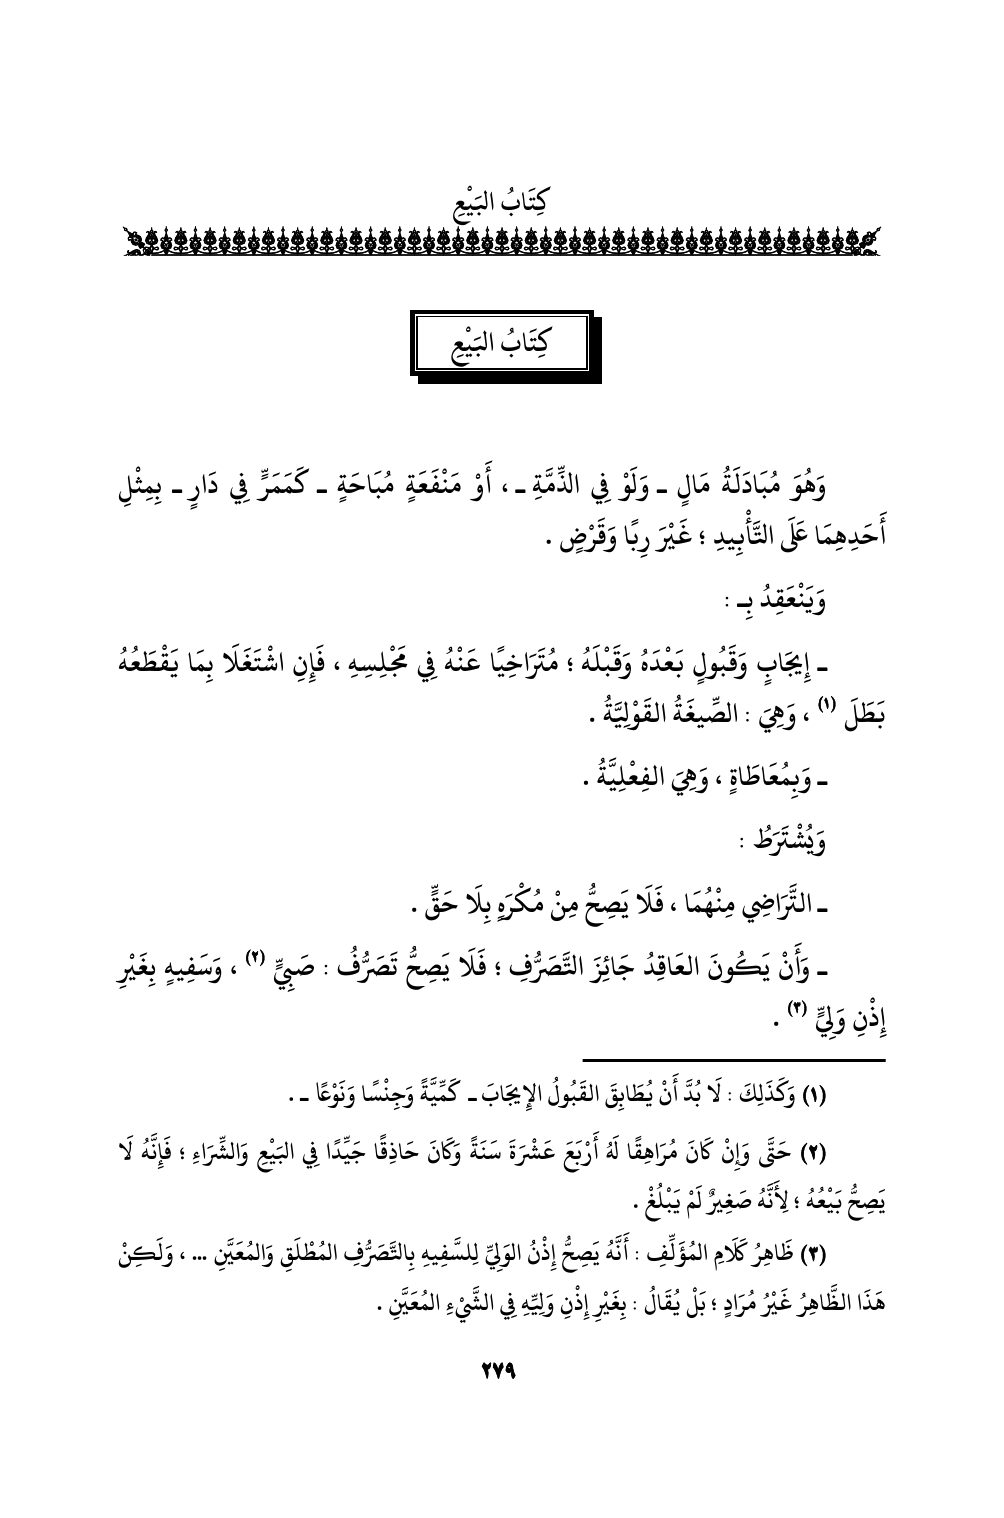 كِتَابُ البَيْعِ
كِتَابُ البَيْعِ
وَهُوَ مُبَادَلَةُ مَالٍ ـ وَلَوْ فِي الذِّمَّةِ ـ ، أَوْ مَنْفَعَةٍ مُبَاحَةٍ ـ كَمَمَرٍّ فِي دَارٍ ـ بِمِثْلِ
أَحَدِهِمَا عَلَى التَّأْبِيدِ ؛ غَيْرَ رِبًا وَقَرْضٍ .
وَيَنْعَقِدُ بِـ :
ـ إِيجَابٍ وَقَبُولٍ بَعْدَهُ وَقَبْلَهُ ؛ مُتَرَاخِيًا عَنْهُ فِي مَجْلِسِهِ ، فَإِنِ اشْتَغَلَا بِمَا يَقْطَعُهُ
بَطَلَ (١) ، وَهِيَ : الصِّيغَةُ القَوْلِيَّةُ .
ـ وَبِمُعَاطَاةٍ ، وَهِيَ الفِعْلِيَّةُ .
وَيُشْتَرَطُ :
ـ التَّرَاضِي مِنْهُمَا ، فَلَا يَصِحُّ مِنْ مُكْرَهٍ بِلَا حَقٍّ .
ـ وَأَنْ يَكُونَ العَاقِدُ جَائِزَ التَّصَرُّفِ ؛ فَلَا يَصِحُّ تَصَرُّفُ : صَبِيٍّ (٢) ، وَسَفِيهٍ بِغَيْرِ
إِذْنِ وَلِيٍّ (٣) .
(١) وَكَذَلِكَ : لَا بُدَّ أَنْ يُطَابِقَ القَبُولُ الإِيجَابَ ـ كَمِّيَّةً وَجِنْسًا وَنَوْعًا ـ .
(٢) حَتَّى وَإِنْ كَانَ مُرَاهِقًا لَهُ أَرْبَعَ عَشْرَةَ سَنَةً وَكَانَ حَاذِقًا جَيِّدًا فِي البَيْعِ وَالشِّرَاءِ ؛ فَإِنَّهُ لَا
يَصِحُّ بَيْعُهُ ؛ لِأَنَّهُ صَغِيرٌ لَمْ يَبْلُغْ .
(٣) ظَاهِرُ كَلَامِ المُؤَلِّفِ : أَنَّهُ يَصِحُّ إِذْنُ الوَلِيِّ لِلسَّفِيهِ بِالتَّصَرُّفِ المُطْلَقِ وَالمُعَيَّنِ ... ، وَلَكِنْ
هَذَا الظَّاهِرُ غَيْرُ مُرَادٍ ؛ بَلْ يُقَالُ : بِغَيْرِ إِذْنِ وَلِيِّهِ فِي الشَّيْءِ المُعَيَّنِ .
٢٧٩